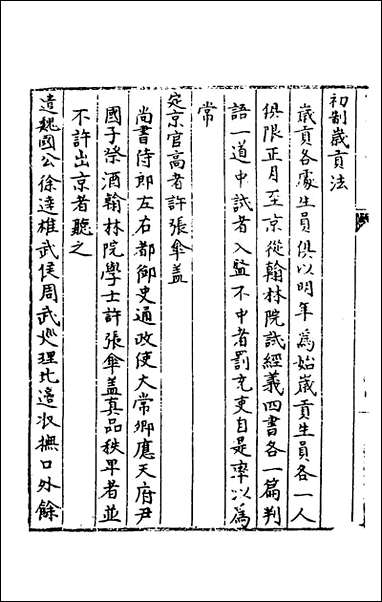 初制歲貢法
歲貢各處生員俱以明年為始歲貢生員各一人
俱限正月至京從翰林院試經義四書各一篇判
語一道中試者入監不中者罰充吏自是率以為
常
定京官高者許張傘盖
尚書侍郎左右都御史通政使大常卿應天府尹
國子祭酒翰林院學士許張傘盖其品秩卑者並
不許出京者聽之
遣魏國公徐達雄武侯周武廵理北邉收撫口外餘